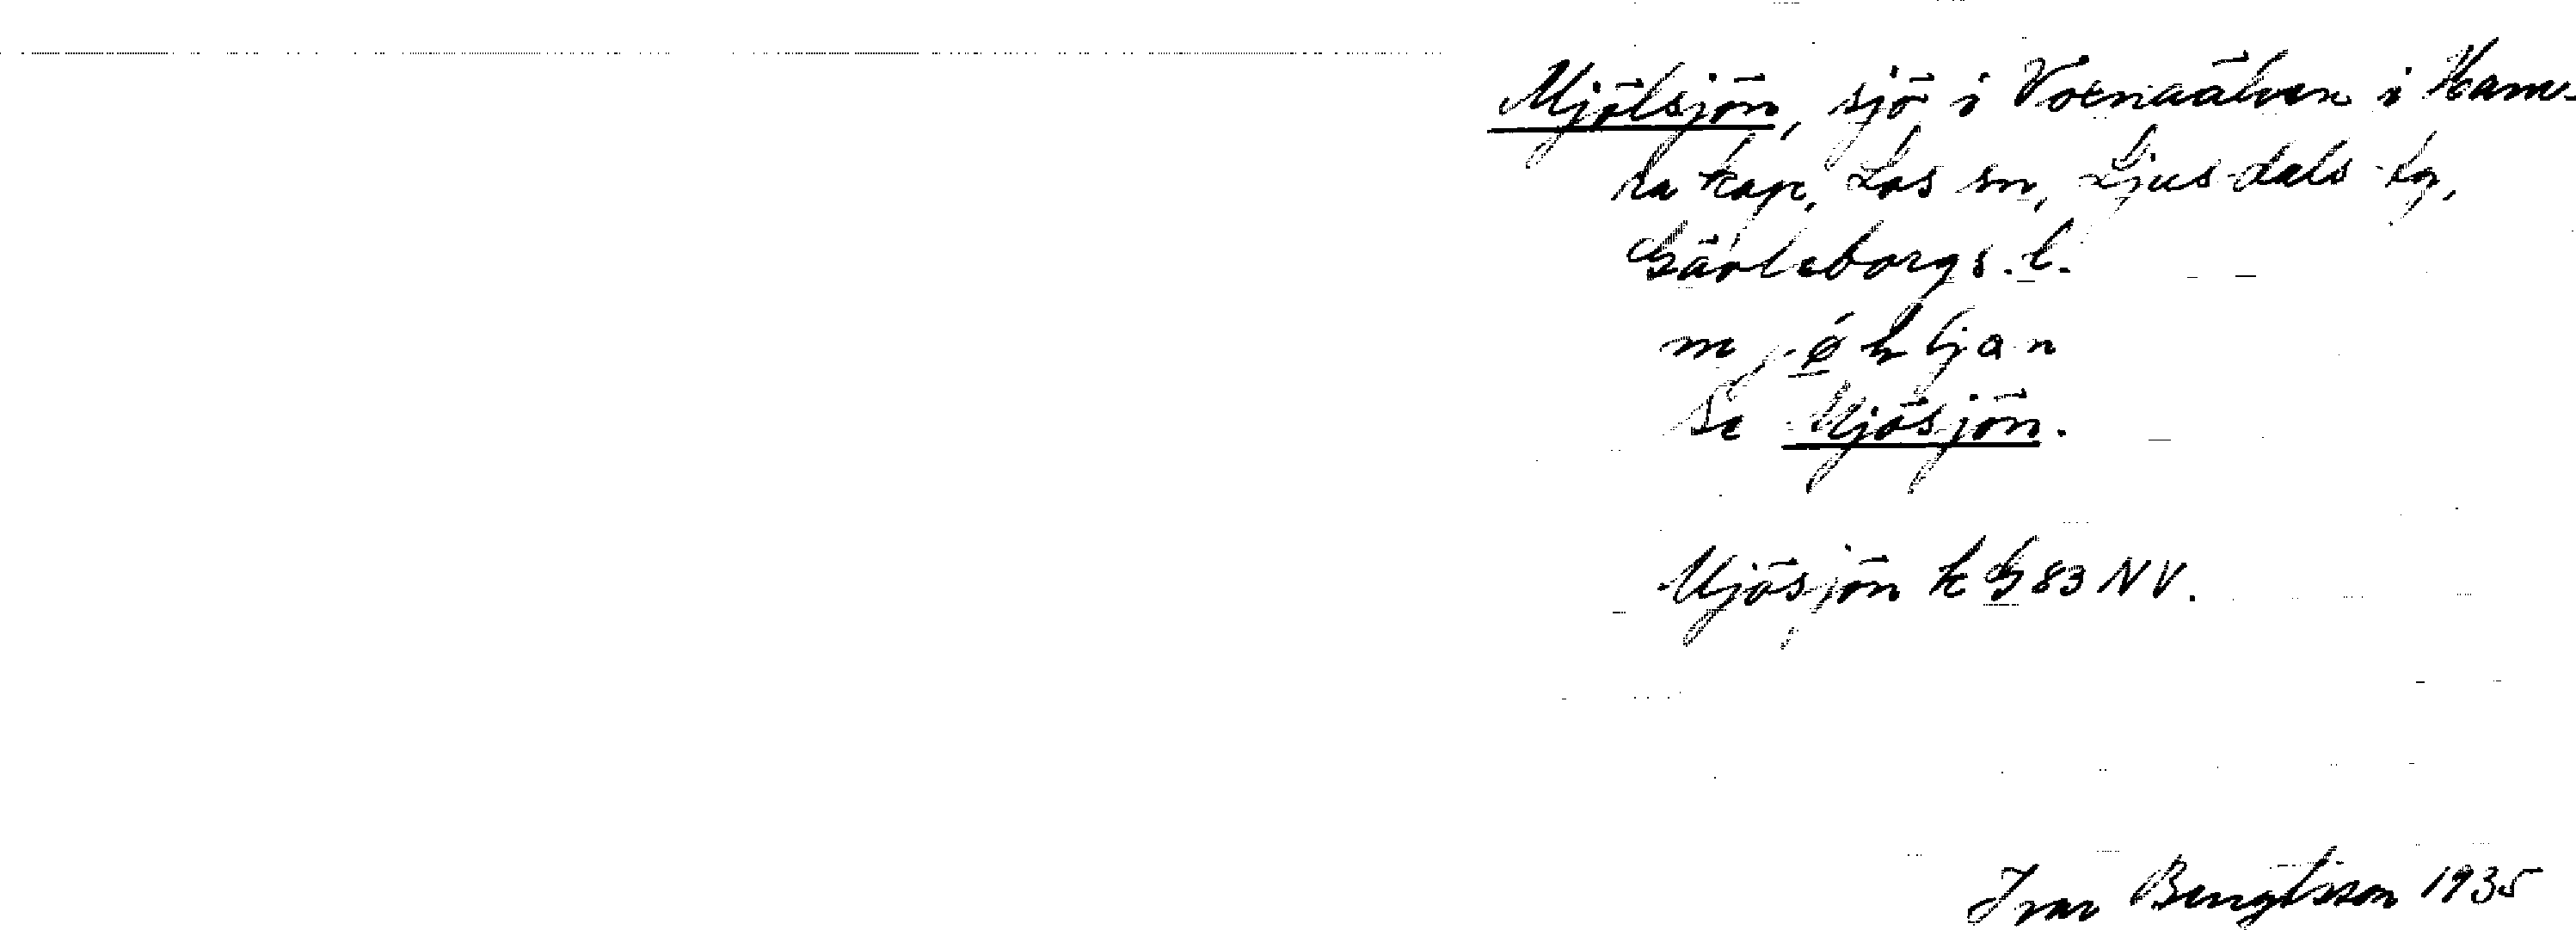 Mjölsjön, sjö i Voxnaälven i Hams-
ra kap, Los sn, Ljusdals tg,
Gävleborgs l.
Se Mjösjön.
Mjösjön k G 83 NV.
Ivar Bengtsson 1935